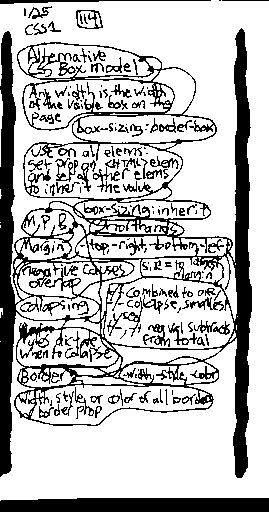 1/25
CSS1
114
Alternative
CSS Box model
Any width is the width
of the visible box on the
page
box-sizing: border-box
Use on all elems:
Set prop on <HTML> elem
and set all other elems
to inherit the value
box-sizing: inherit
M, P, B
shorthands
Margin
-top, -right, -bottom, -left
Negative causes
overlap
size = to largest
margin
combined to one
collapse, smallest
used
neg val subtracts
from total
Collapsing
Rules dictate
when to collapse
Border
-width, -style, -color
Width, style, or color of all borders
border prop